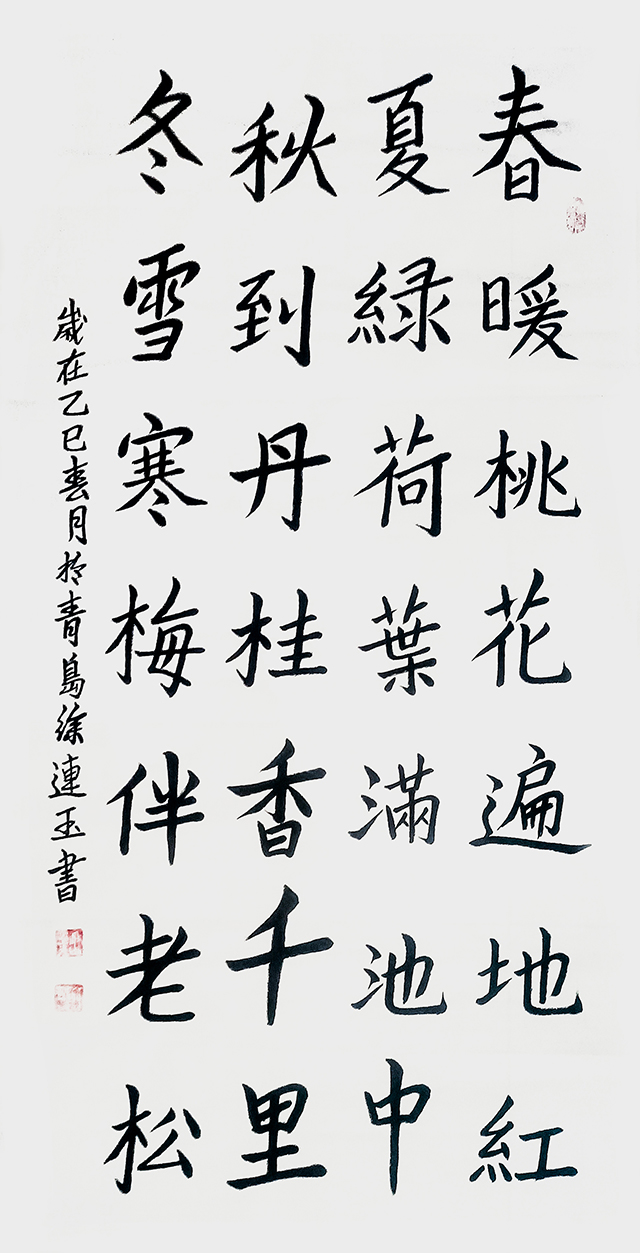 春暖桃花遍地紅
夏緑荷葉滿池中
秋到丹桂香千里
冬雪寒梅伴老松
歲在乙巳春月於青島徐連玉書